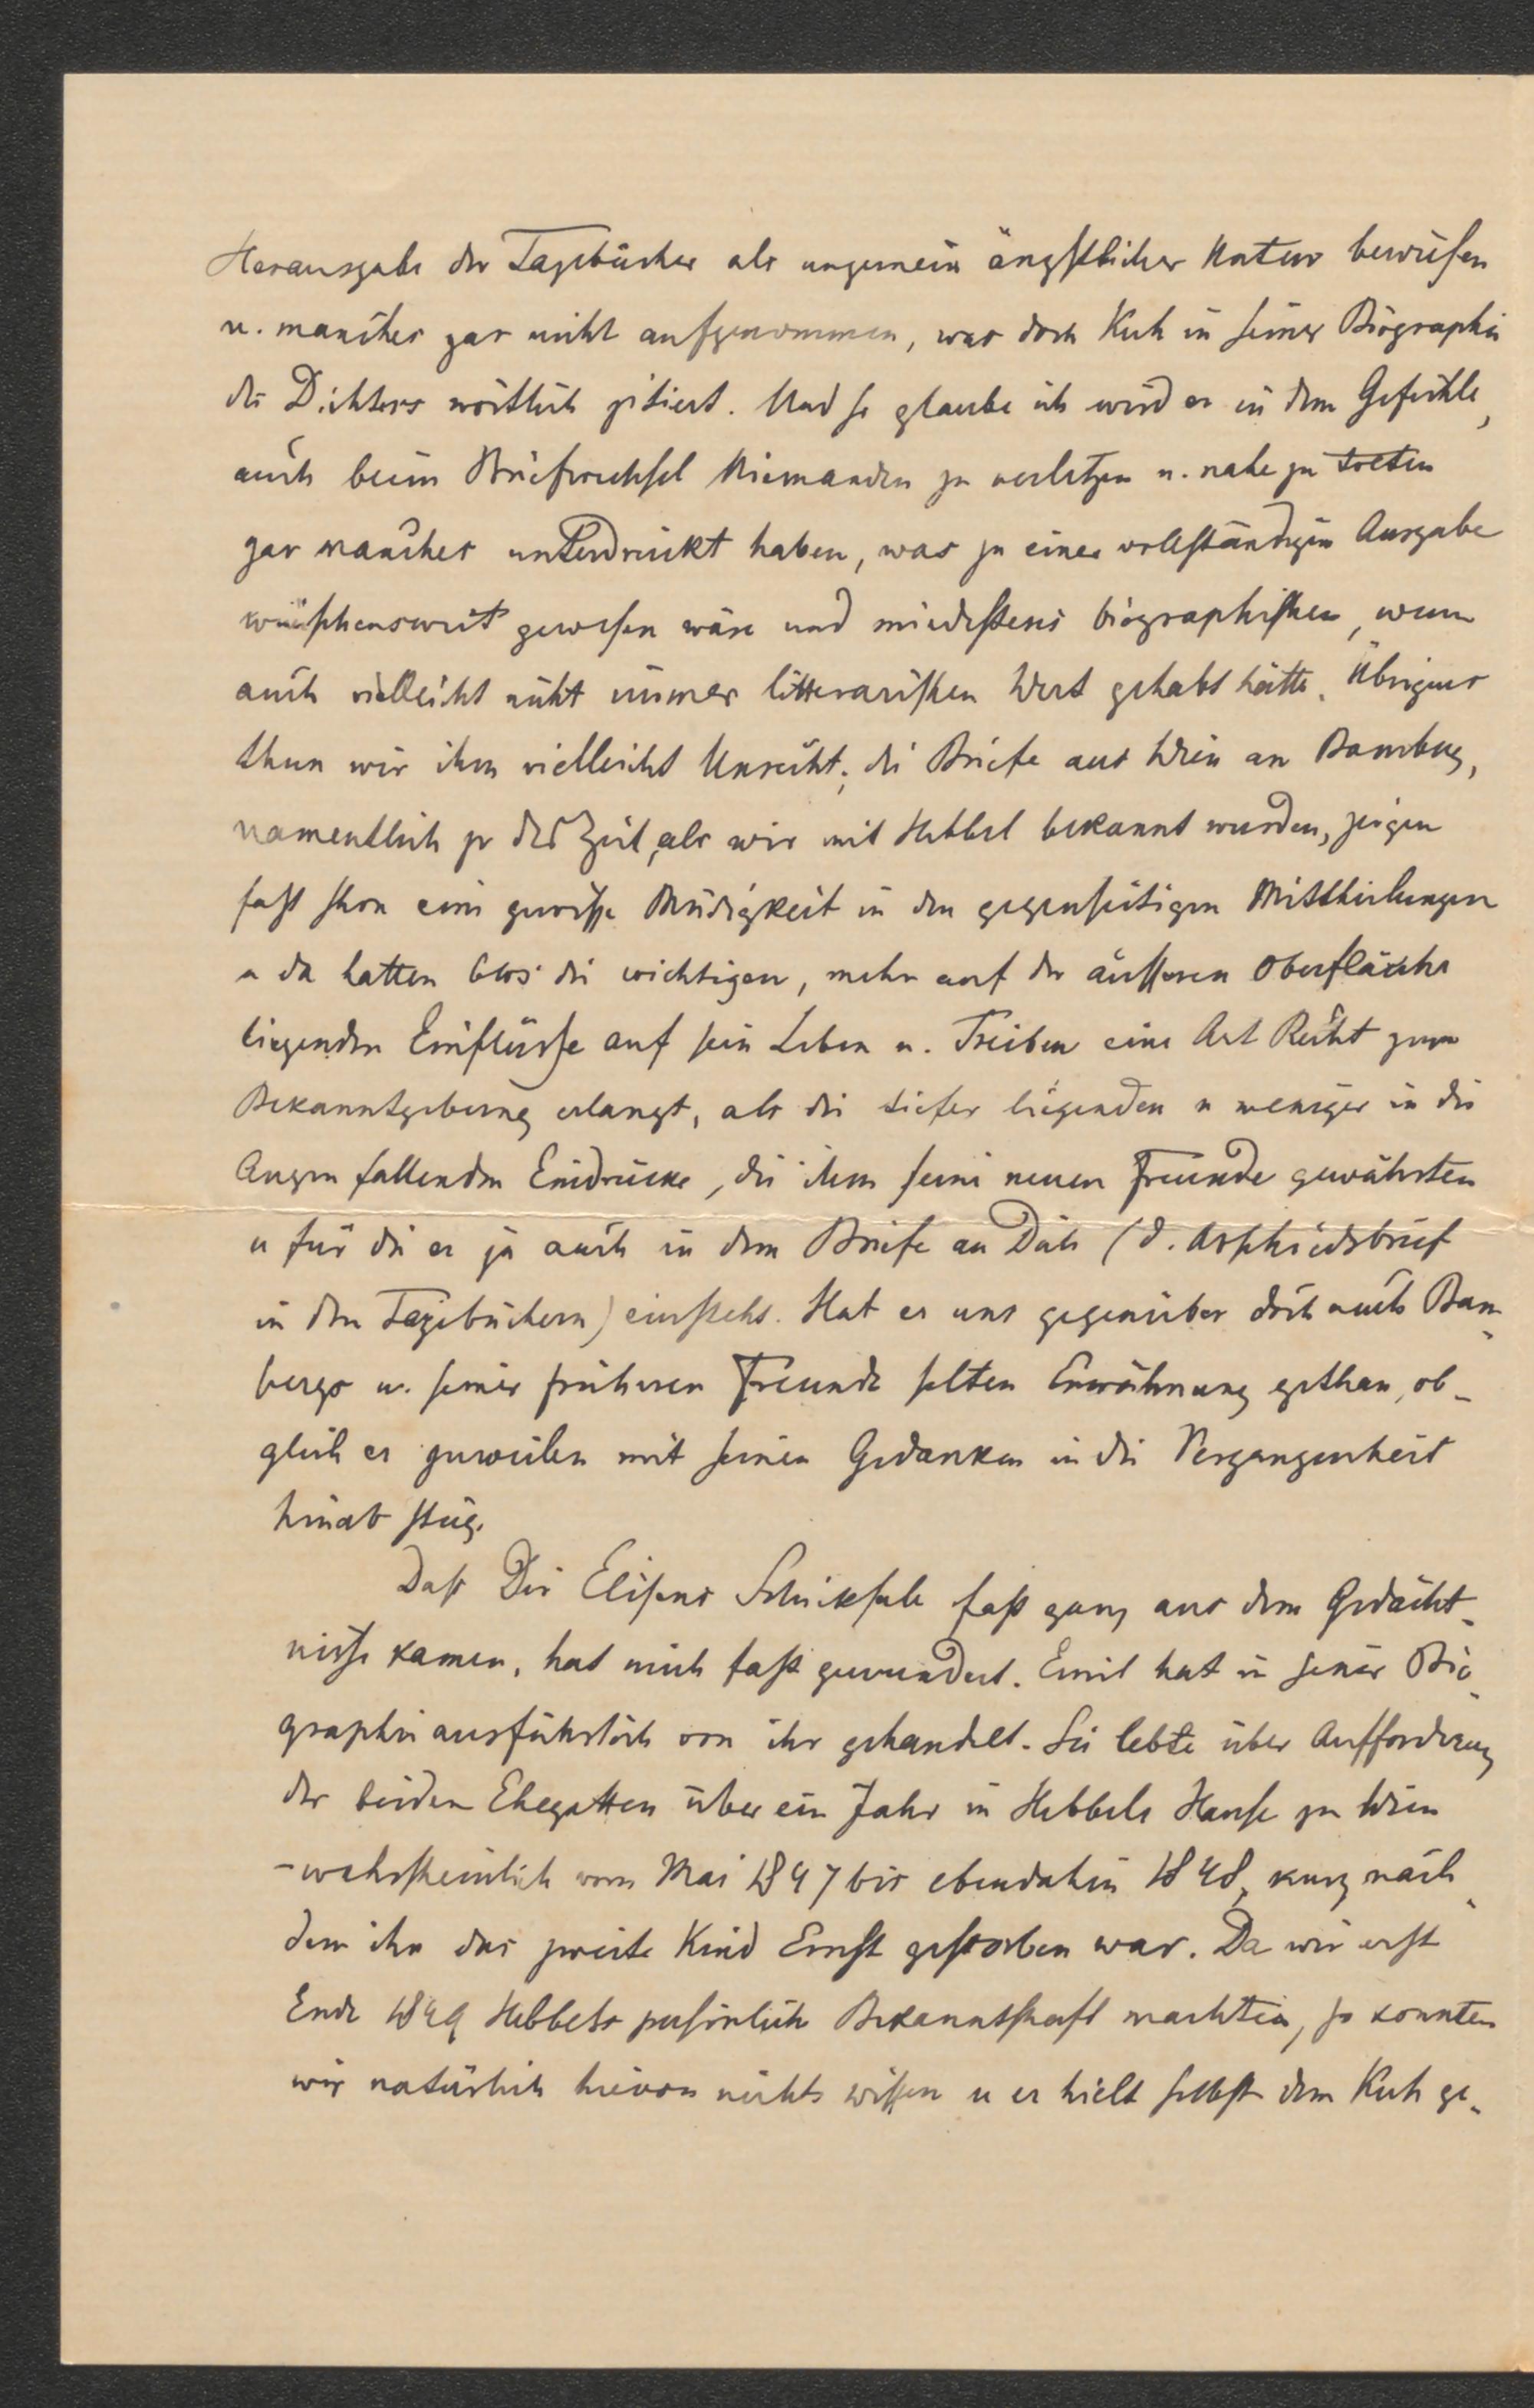 Herausgabe der Tagebücher als ungemein ängstlicher Natur bewiesen
u. manches gar nicht aufgenommen, was doch Kuh in seiner Biographie
des Dichters wörtlich zitiert. Und so glaube ich wird er in dem Gefühle,
auch beim Briefwechsel Niemanden zu verletzen u. nahe zu treten
gar manches unterdrückt haben, was zu einer vollständigen Ausgabe
wünschenswert gewesen wäre und mindestens biographischen, wenn
auch vielleicht nicht immer litterarischen Wert gehabt hätte. Übrigens
thun wir ihm vielleicht Unrecht; die Briefe aus Wien an Bamberg,
namentlich zu der Zeit, als wir mit Hebbel bekannt wurden, zeigen
fast schon eine gewisse Müdigkeit in den gegenseitigen Mittheilungen
u da hatten blos die wichtigen, mehr auf der äusseren Oberfläche
liegenden Einflüsse auf sein Leben u. Treiben eine Art Recht zum
Bekanntgebung erlangt, als die tiefer liegenden u weniger in die
Augen fallenden Eindrücke, die ihm seine neuen Freunde gewährten
u für die er ja auch in dem Briefe an Dich (d. Abschiedsbrief
in den Tagebüchern) einsteht. Hat er uns gegenüber doch auch Bam-
bergs u. seiner früheren Freunde selten Erwähnung gethan, ob-
gleich er zuweilen mit seinen Gedanken in die Vergangenheit
hinab stieg.
Dass Dir Elisens Schicksale fast ganz aus dem Gedächt-
nisse kamen, hat mich fast gewundert. Emil hat in seiner Bio-
graphie ausführlich von ihr gehandelt. Sie lebte über Aufforderung
der beiden Ehegatten über ein Jahr in Hebbels Hause zu Wien
– wahrscheinlich vom Mai 1847 bis ebendahin 1848, kurz nach-
dem ihr das zweite Kind Ernst gestorben war. Da wir erst
Ende 1849 Hebbels persönliche Bekanntschaft machten, so konnten
wir natürlich hievon nichts wissen u er hielt selbst dem Kuh ge-